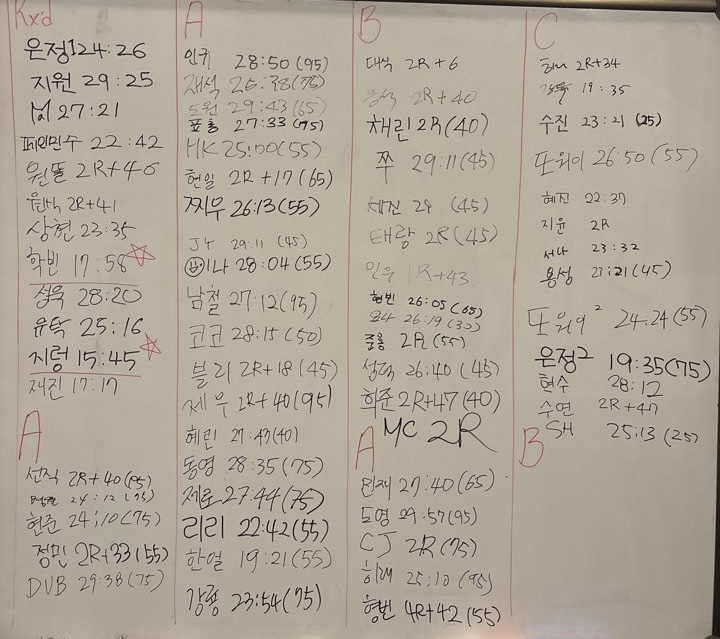 Rx'd
은정1 24:26
지원 29:25
M 27:21
22:42
원똘 2R+46
2R+41
상현 23:35
학빈 17:58
성욱 28:20
유탁 25:16
지렁 15:45
재진 17:17
A
선직 2R+40(95)
24:12(75)
현준 24:10(75)
정민 2R+33(55)
DUB 29:38(75)
A
인귀 28:50(95)
재석 26:38(75)
도원 29:43(65)
표홍 27:33(75)
HK 25:00(55)
현일 2R+17(65)
찌우 26:13(55)
JY 29:11(45)
이나 28:04(55)
남철 27:12(95)
코코 28:15(50)
블리 2R+18(45)
제우 2R+40(95)
혜린 27:47(40)
동영 28:35(75)
제로 27:44(75)
리리 22:42(55)
한얼 19:21(55)
강평 23:54(75)
B
대식 2R+6
2R+40
채린 2R(40)
쭈 29:11(45)
세진 29 (45)
태랑 2R(45)
민우 1R+43
현빈 26:05(65)
요나 26:19(30)
준용 2R(55)
성격 26:40(45)
희준 2R+47(40)
MC 2R
A
민재 27:40(65)
도영 29:57(95)
CJ 2R(75)
희래 25:10(95)
형번 4R+42(55)
C
2R+34
19:35
수진 23:21(25)
또위이 26:50(55)
혜진 22:37
지윤 2R
서나 23:32
용성 23:21(45)
또위이2 24:24(55)
은정2 19:35(75)
현수 28:12
수연 2R+47
B
SH 25:13(25)